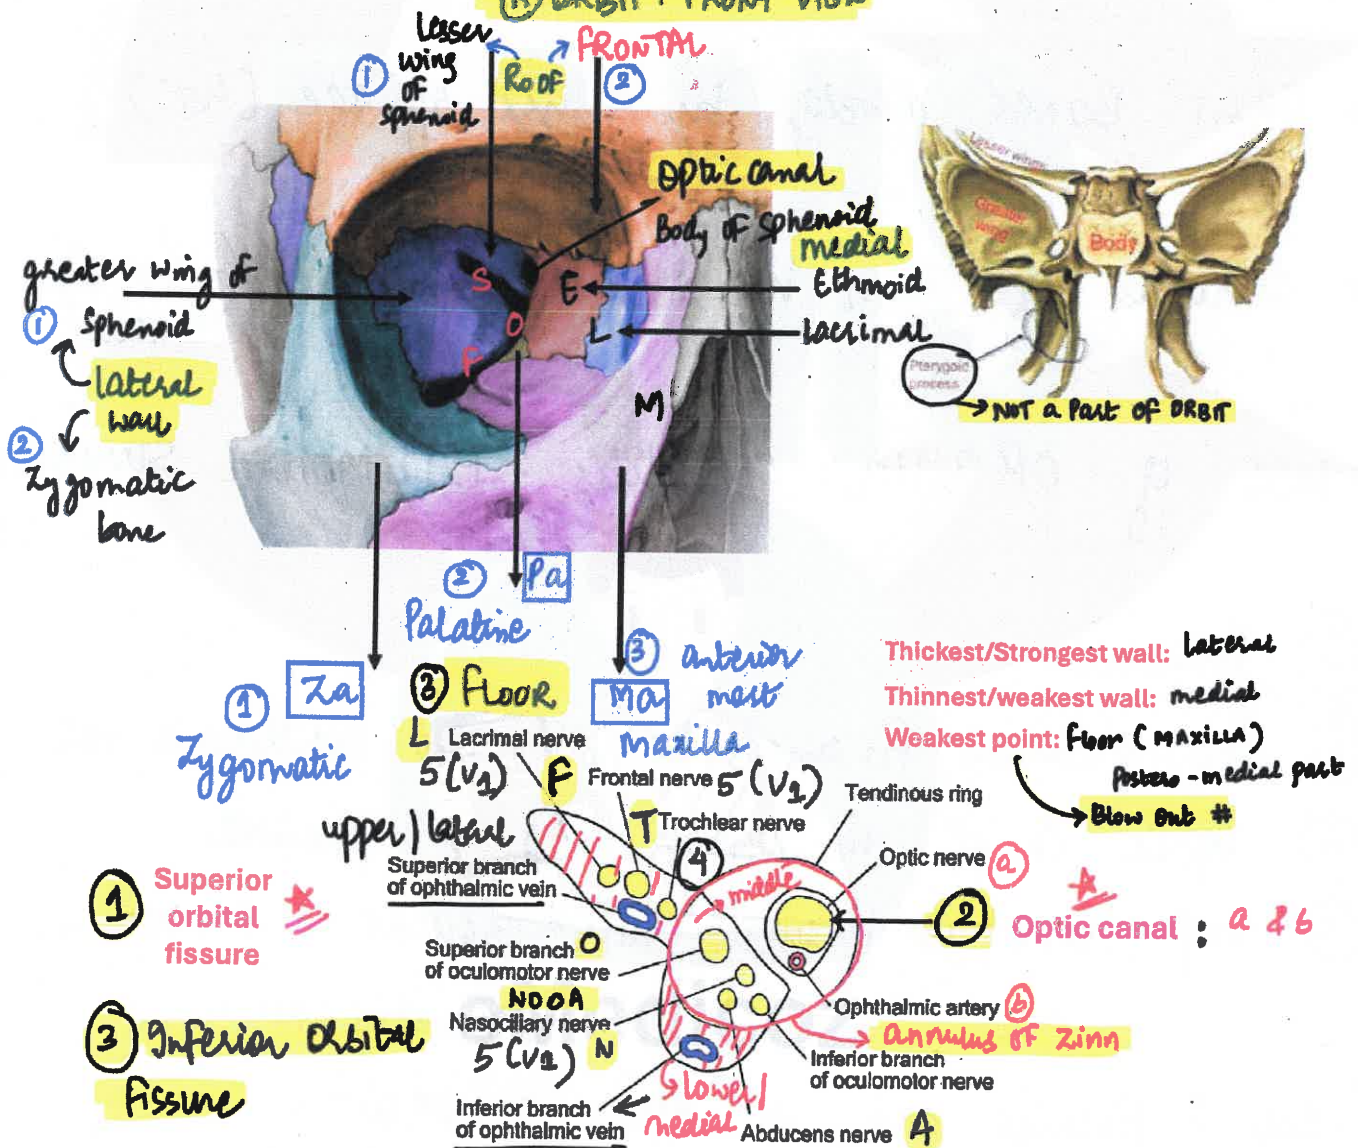 (A) ORBIT : FRONT VIEW
Lesser
wing
of
sphenoid
①
Roof
FRONTAL
②
Optic canal
Body of sphenoid
medial
Ethmoid
lacrimal
greater wing of
① sphenoid
lateral
wall
②
Zygomatic
bone
S
O
F
E
L
M
Lesser wing
Greater
wing
Body
Pterygoid
process
NOT a Part OF ORBIT
② Pa
Palatine
③ anterior
most
Ma
Maxilla
① Za
Zygomatic
③ FLOOR
Thickest/Strongest wall: lateral
Thinnest/weakest wall: medial
Weakest point: Floor (MAXILLA)
Postero-medial part
Blow out #
L Lacrimal nerve
5(V1)
F Frontal nerve 5(V1)
T Trochlear nerve
④
Tendinous ring
upper/lateral
Superior branch
of ophthalmic vein
middle
Optic nerve ⓐ
① Superior
orbital
fissure
② Optic canal : a & b
Superior branch O
of oculomotor nerve
NOOA
Nasociliary nerve
5(V1) N
Ophthalmic artery ⓑ
annulus OF Zinn
Inferior branch
of oculomotor nerve
③ Inferior Orbital
Fissure
lower/
medial
Inferior branch
of ophthalmic vein
Abducens nerve A